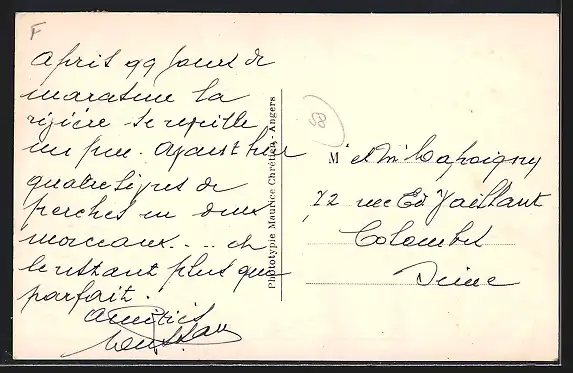 F
après 99 jours de
marasme la
rizière se réveille
un peu. Ayant hier
quatre livres de
perches en deux
morceaux.... et
le restant plus que
parfait.
amitiés
Phototypie Maurice Chrétien - Angers
M et Mme Lapoigny
72 rue Ed Vaillant
Colombes
Seine